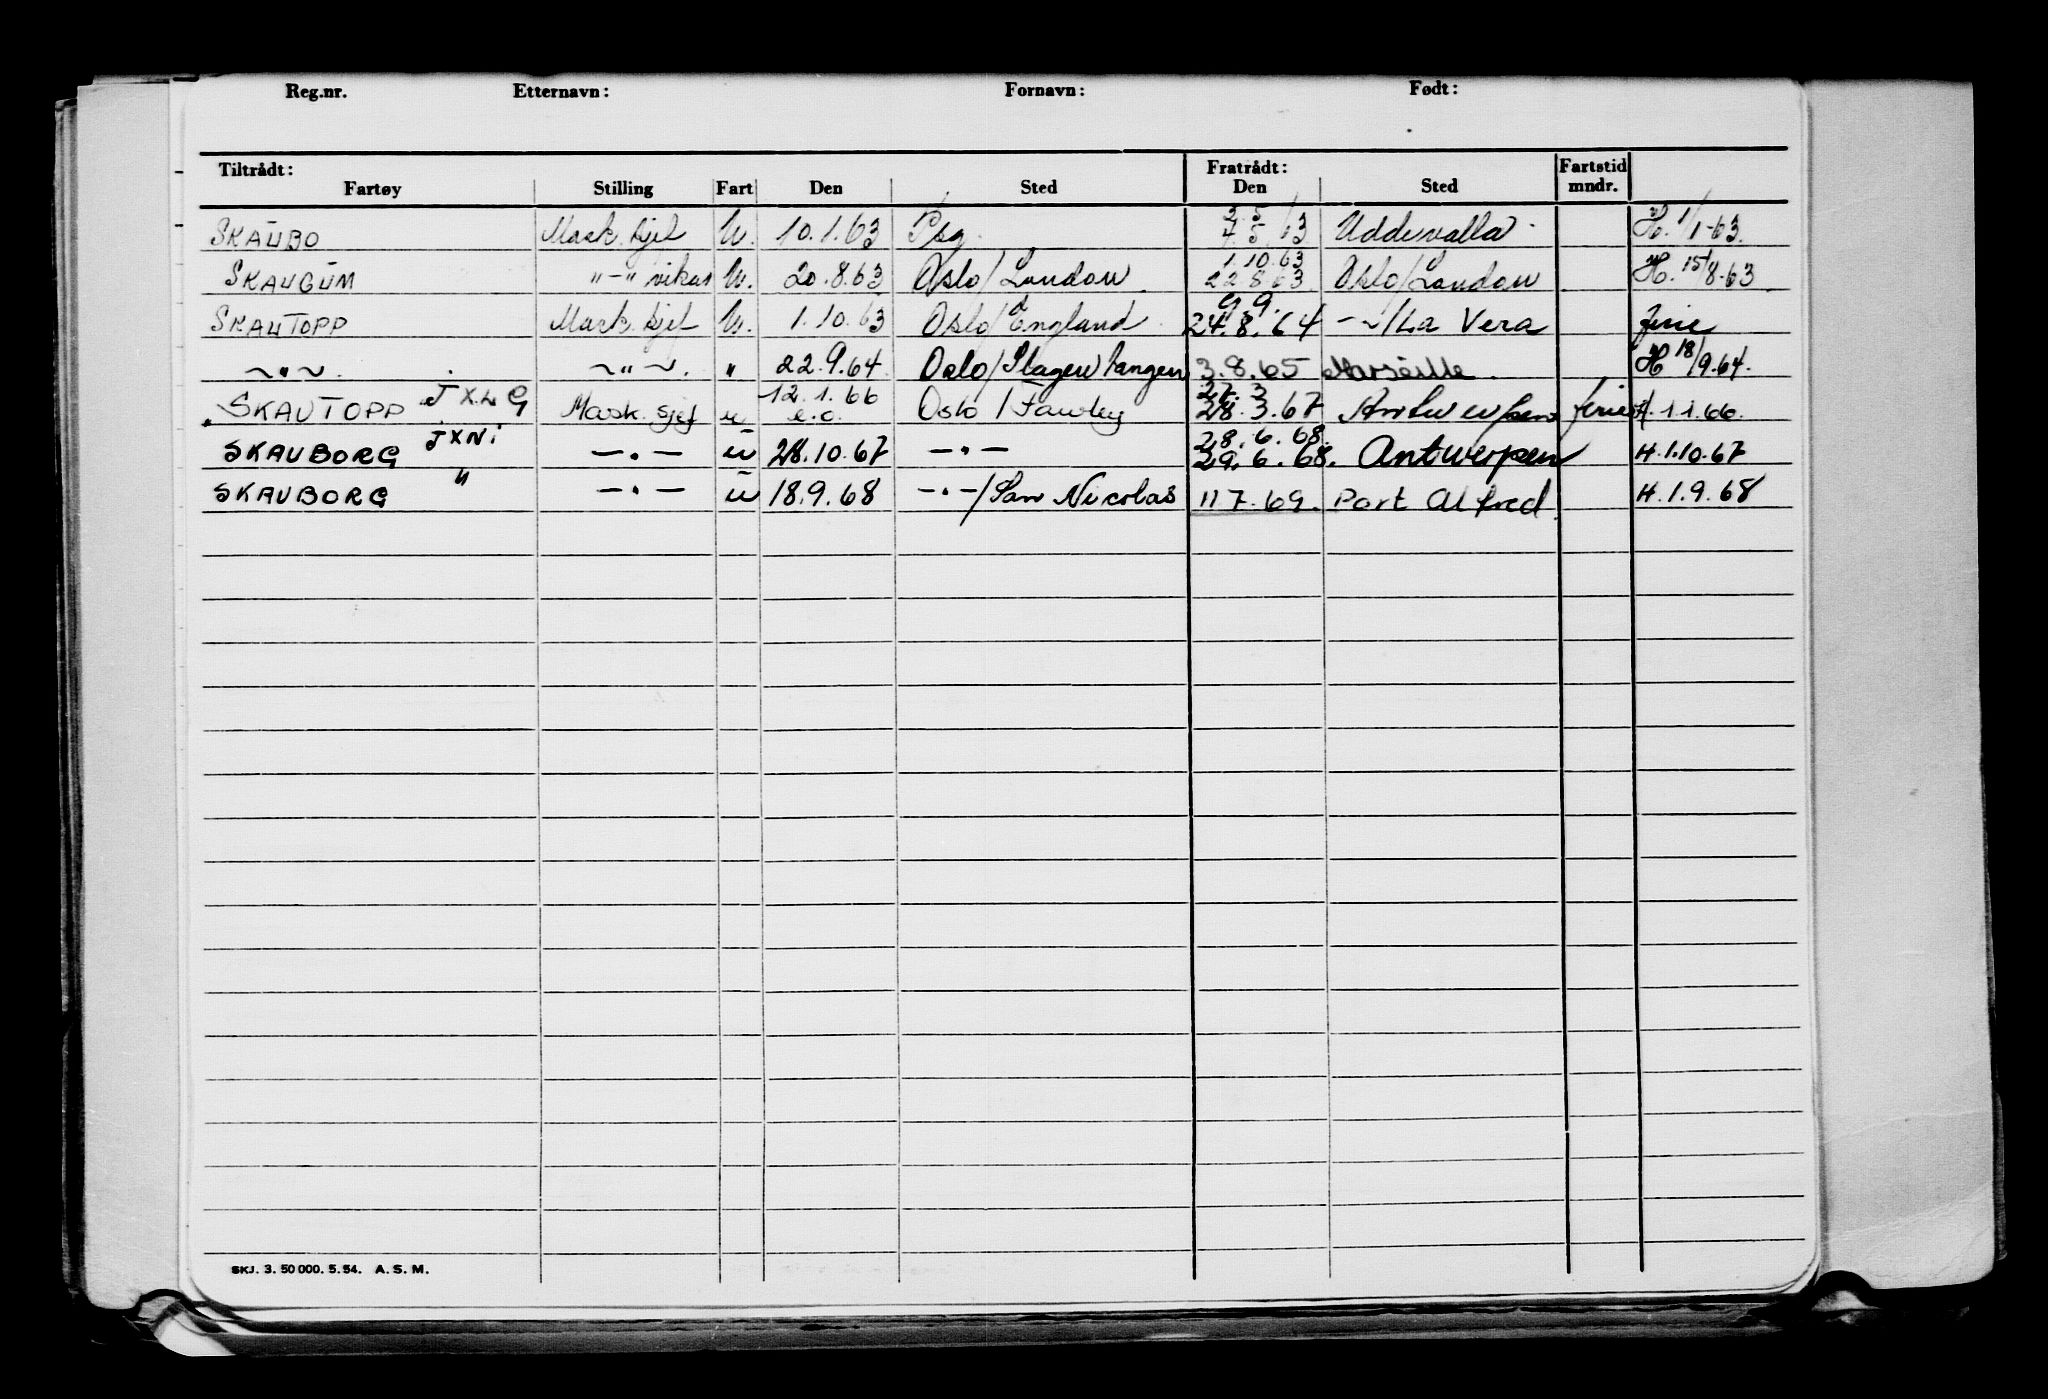 Reg.nr. Etternavn: Fornavn: Født:
Tiltrådt: Fratrådt: Fartstid
Fartøy Stilling Fart Den Sted Den Sted mndr.
3. 5
SKAUBO Mask. sjef U. 10.1.63 Psg. 4. 5. 63 Uddevalla H. 1/1-63.
1.10.63
SKAUGUM "-" vikar U. 20.8.63 Oslo/London 22 8 63 Oslo/London H. 15/8-63
9 9.
SKAUTOPP Mask. sjef U. 1.10.63 Oslo/England 24.8.64 -"-/La Vera ferie
~"~. ~"~. " 22.9.64 Oslo/Slagentangen 3.8.65 Marseille. H 18/9.64.
JXLG 12.1.66 27. 3
SKAUTOPP Mask. sjef u e.o. Oslo/Fawley 28. 3.67 Antwerpen ferie H. 1.1.66.
JXNi 28. 6. 68.
SKAUBORG -"- u 28.10.67 -"- 29. 6. 68. Antwerpen H. 1.10.67
SKAUBORG " -"- u 18.9.68 -"-/San Nicolas 11 7. 69. Port Alfred. H. 1.9.68
SKJ. 3. 50 000. 5. 54. A. S. M.